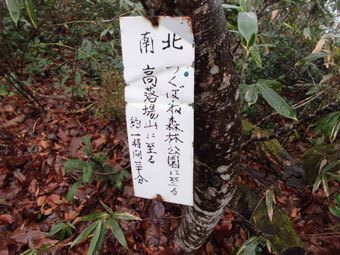 北 つくばね森林公園に至る
南 高落場山に至る
約一時間三十分